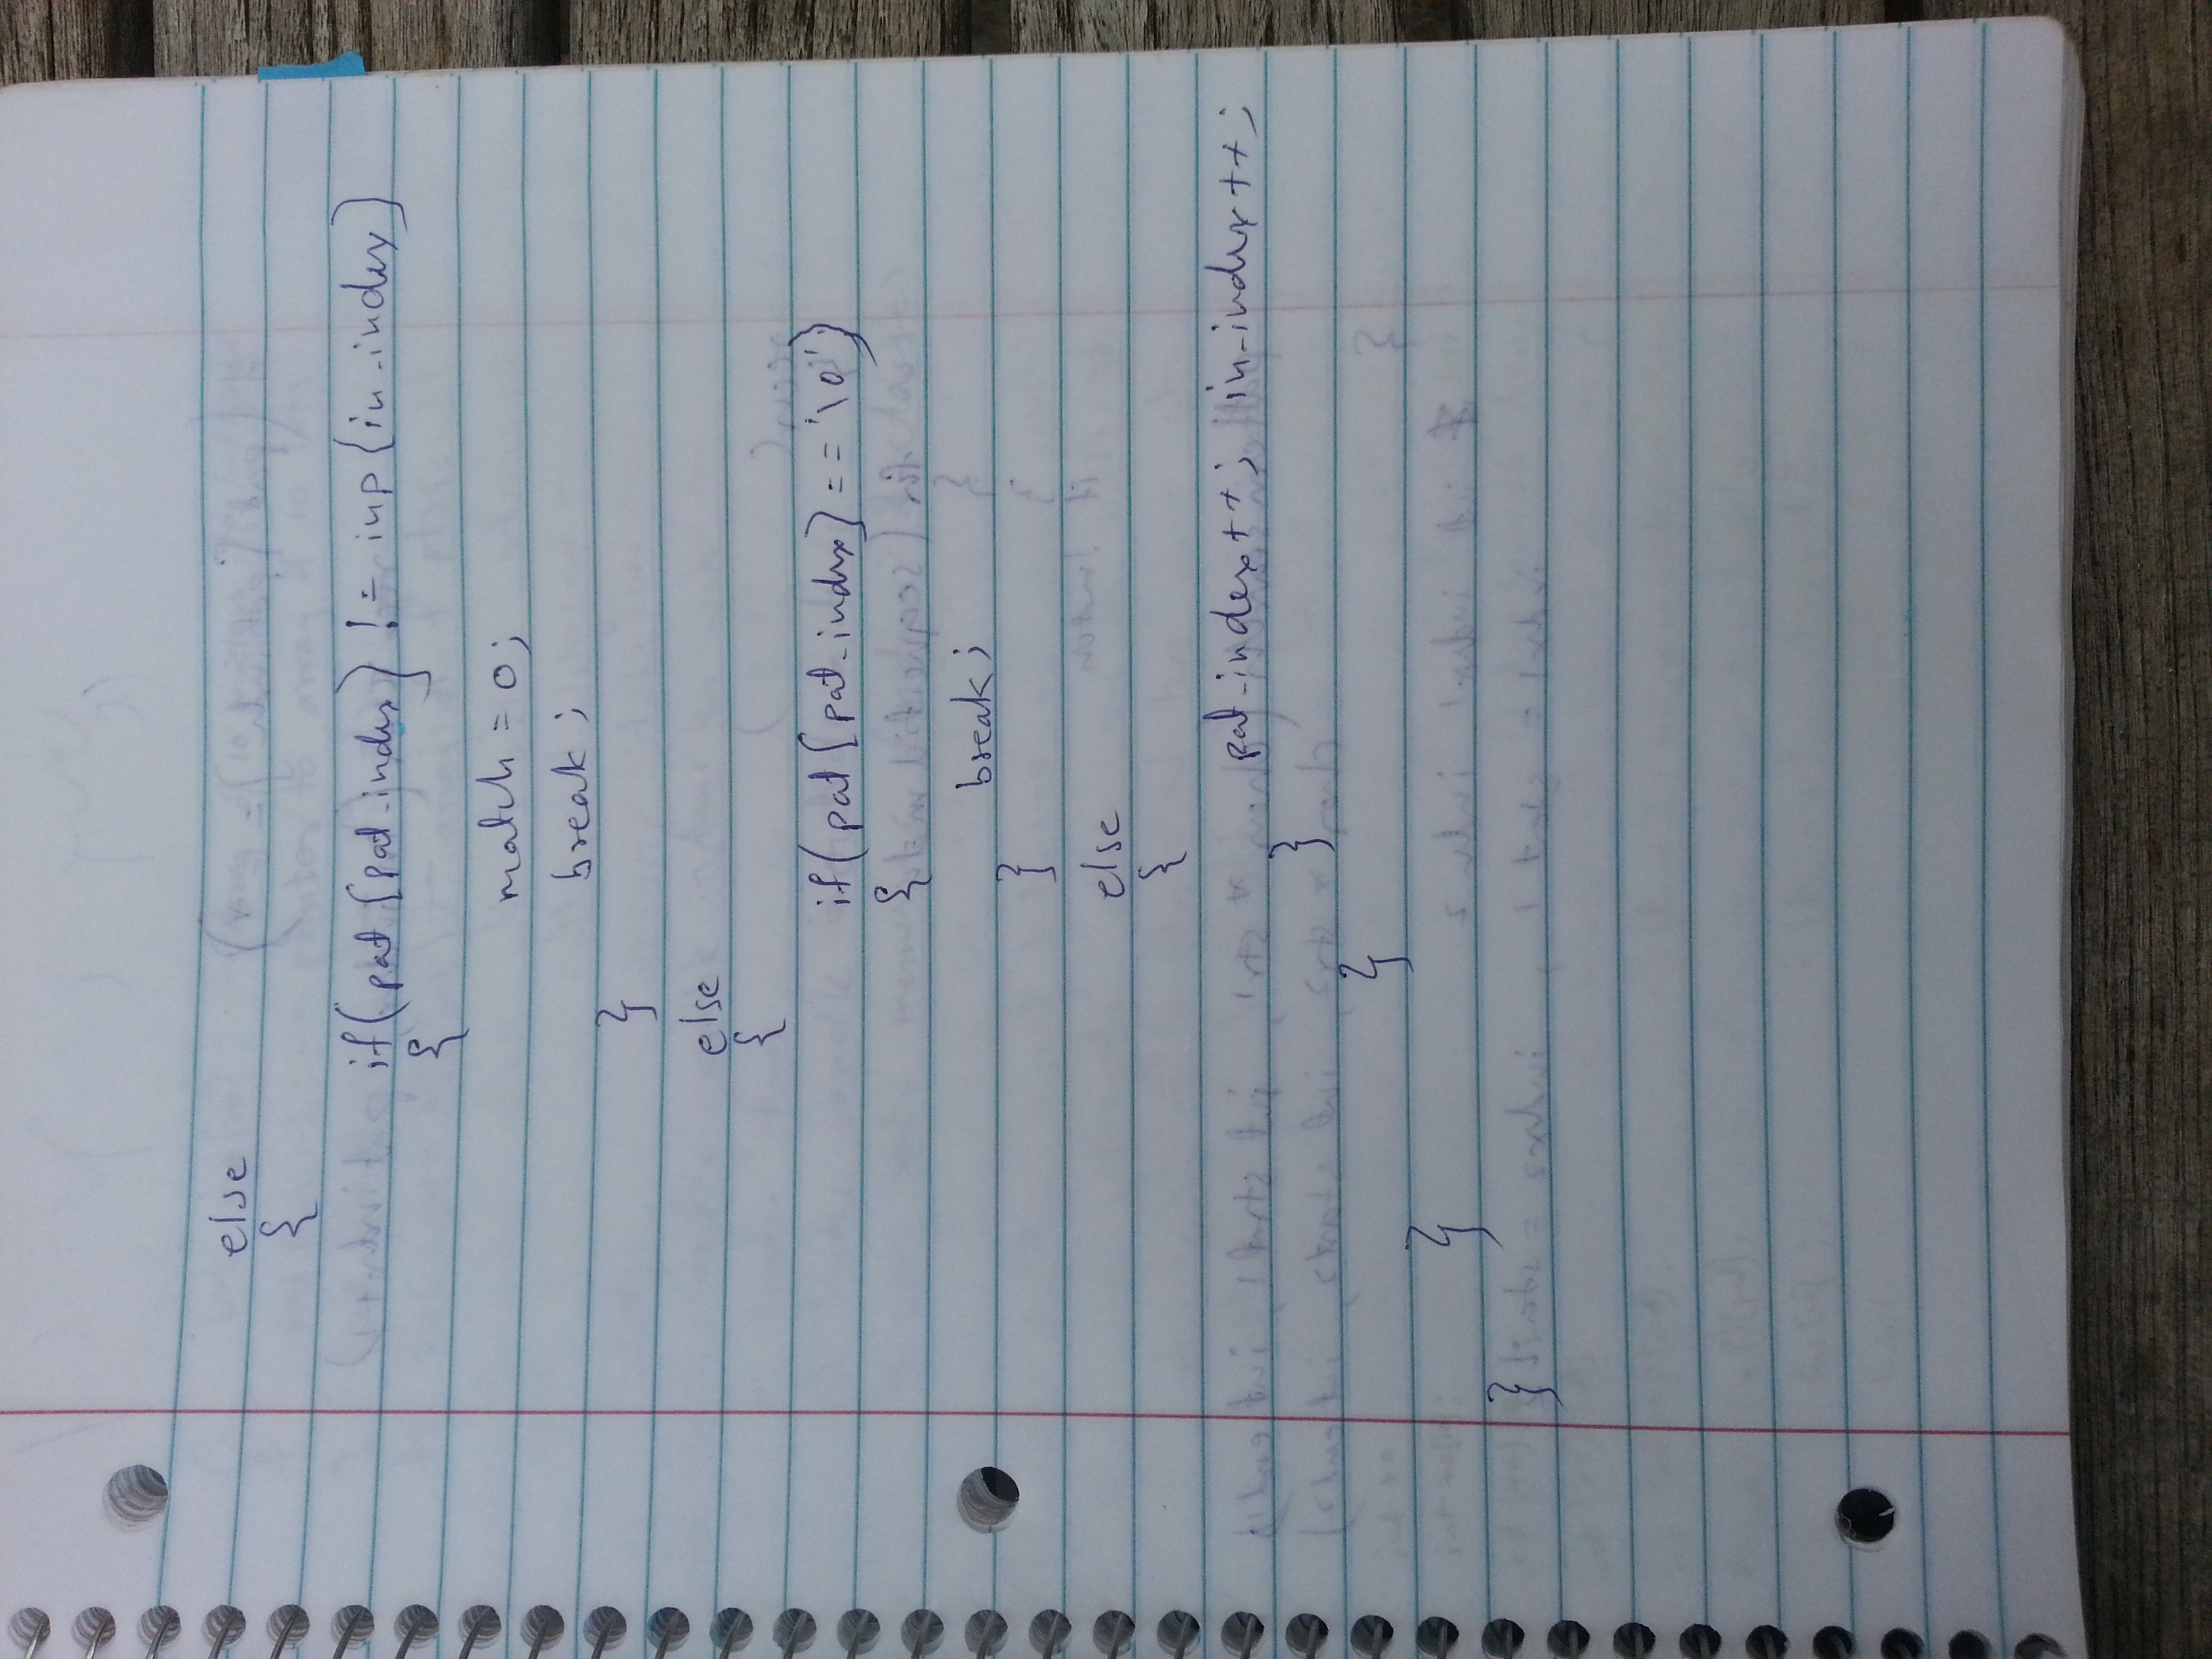 else
{
if(pat[pat_index] != inp[in_index]
{
match = 0;
break;
}
else
{
if(pat[pat_index] == '\0')
{
break;
}
else
{
pat_index++; in_index++;
}
}
}
}